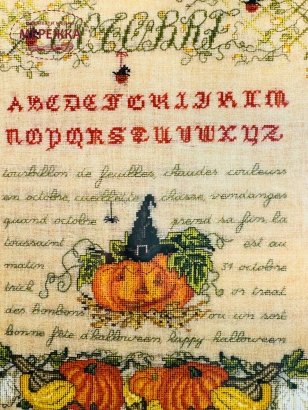 МЕРЕЖКА
OCTOBRE
ABCDEFGHIJKLM
NOPQRSTUVWXYZ
tourbillon de feuilles, chaudes couleurs
en octobre, cueillette, chasse, vendanges
quand octobre prend sa fin la
toussaint est au
matin 31 octobre
trick or treat
des bonbons ou un sort
bonne fête d'halloween happy halloween